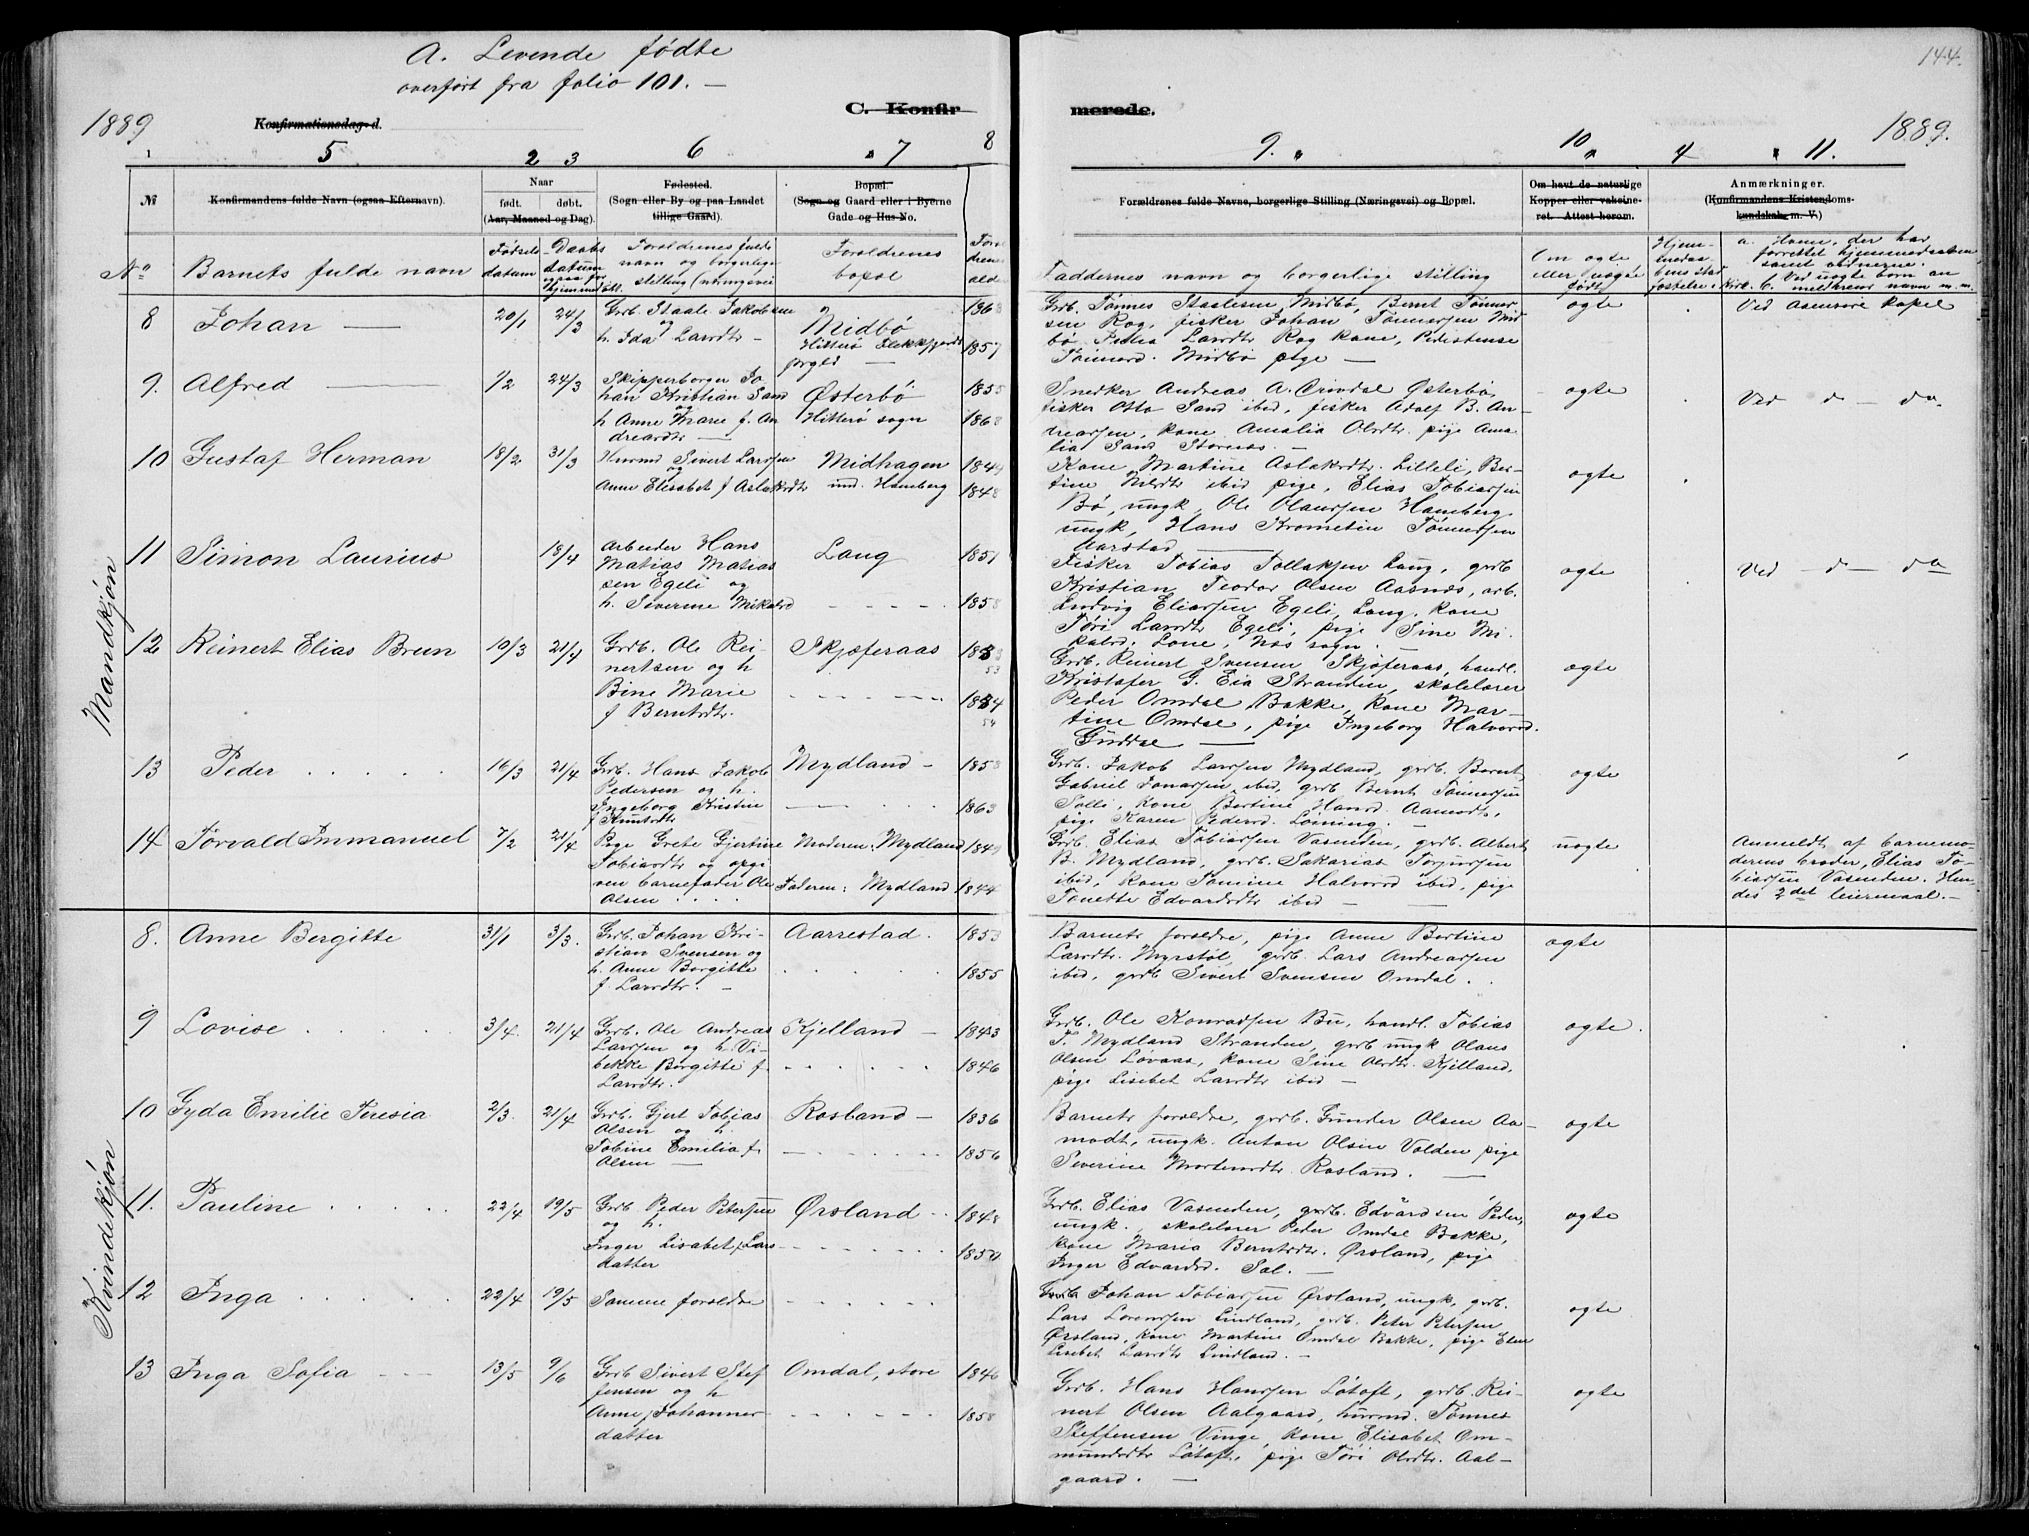 A. Levende fødte
overført fra folio 101. —
144.
1889
1889.
Konfirmationsdag d.
C. Konfir
merede.
1 5 2 3 6 7 8
9. 10 4 11.
№ Konfirmandens fulde Navn (ogsaa Efternavn).
Naar
født. døbt.
(Aar, Maaned og Dag).
Fødested.
(Sogn eller By og paa Landet
tillige Gaard).
Bopæl.
(Sogn og Gaard eller i Byerne
Gade og Hus-No.
Forældrenes fulde Navne, borgerlige Stilling (Næringsvei) og Bopæl.
Om havt de naturlige
Kopper eller vakcine-
ret. Attest herom.
Anmærkninger.
(Konfirmandens Kristendoms-
kundskab m. V.)
No Barnets fulde navn
Fødsels
datum
Daabs
datum
Foroldrenes fulde
navn og borgerlige
stilling (næringsvei
Foroldrenes
bopæl
Faddernes navn og borgerlige stilling
Om ægte
eller uægte
født
a. Hvem, der har
forrettet hjemmedaaben
samt vidnerne.
Mandkjøn
8 Johan —
20/1 24/3
Grb. Staale Jakobsen
og
h. Ida Larsdtr —
Midbø
Hitterø Flekkefjords
prgld —
1868
1857
Grb. Tønnes Staalesen, Midbø, Bernt Tønnes-
sen Rog, fisker Johan Tønnessen Mid
bø, Petra Larsdtr Rog kone,
Tønnesd. Midbø pige —
ægte
Ved Aasenøre kapel
9. Alfred —
1/2 24/3
Skipperborger Jo
han Kristian Sand
og
h Anne Marie f. An
dreasdtr —
Østerbø
Hitterø sogn
1855
1868
Snedker Andreas A. Østerbø,
fisker Otto Sand ibid, fisker Adolf B. An-
dreassen, kone Amalia Olsdtr. pige Ama-
lia Sand Storenæs —
ægte
Ved — d — do
10 Gustaf Herman
18/2 31/3
Husmd Sivert Larssen
og
Anne Elisabet f Aslaksdtr
Midhagen
und. Hamberg
1849
1848
Kone Martine Aslaksdtr. Lilleli, Ber-
tine Nilsdtr ibid pige, Elias Tobiassen
Bø, ungk, Ole Olaussen Hamberg
ungk, Hans Krometin Tønnessen
Aarstad —
ægte
11 Simon Laurius
18/4
Arbeider Hans
Matias Matias
sen Egeli og
h. Severine Mikalsd
Laug
1851
1858
Fisker Tobias Tollaksen Laug, grb
Kristian Teodor Olsen Aasnes, arb.
Ludvig Eliassen Egeli, Laug, kone
Tøri Larsdtr Egeli, pige Sine Mi-
kalsd. Lone, Nes sogn.
ægte
Ved — d — do
12 Reinert Elias Breen
10/3 21/4
Grb. Ole Rei-
nertsen og h
Bine Marie
f Berntsdtr.
Skjæferaas
53
54
Grb. Reinert Svensen Skjæferaas, handl.
Kristofer G. Eia Stranden, skolelærer
Peder Omdal Bakke, kone Mar-
tine Omdal, pige Ingeborg Halvorsd.
Guddal —
ægte
13 Peder
16/3 21/4
Grb. Hans Jakob
Pedersen og h.
Ingeborg Kristine
f Knutsdtr
Mydland —
1858
1863
Grb. Jakob Larssen Mydland, grb. Bernt
Gabriel Jonassen ibid, grb Bernt Tønnessen
Solli, kone Bertine Hansd. Aamodt,
pige Karen Pedersd. Løining. —
ægte
14 Torvald Immanuel
7/2 21/4
Pige Grete Gjertine
Tobiasdtr og opgi
ven barnefader Ole
Olsen
Moderen: Mydland
Faderen: Mydland
1849
1844
Grb. Elias Tobiassen Vasenden, grb. Albert
B. Mydland, grb. Sakarias Torjussen
ibid, kone Tomine Halvorsd ibid, pige
Tonette Edvardsdtr ibid —
uægte
Anmeldt af barnemo-
derens broder, Elias To-
biassen Vasenden. Hen-
des 2det leiermaal. —
Kvindekjøn
8. Anne Bergitte
31/1 3/3.
Grb. Johan Kri-
stian Svensen og
h. Anne Bergitte
f. Larsdtr. —
Aarrestad.
1853
1855
Barnets forældre, pige Anne Bertine
Larsdtr. Myrstøl, grb. Lars Andreassen
ibid, grb Sivert Svensen Omdal.
ægte
9 Lovise
3/4. 21/4
Grb. Ole Andreas
Larssen og h. Vi-
bekke Bergitte f.
Larsdtr.
Kjelland —
1843
1846
Grb. Ole Konradsen Bu, handl. Tobias
T. Mydland Stranden, grb ungk Olaus
Olsen Løvaas, kone Sine Olsdtr. Kjelland,
pige Lisebet Larsdtr ibid —
ægte.
10 Gyda Emilie Teresia
2/3. 21/4
Grb. Gjert Tobias
Olsen og h.
Tobine Emilia f.
Olsen —
Rosland —
1836
1856
Barnets forældre, grb. Gunder Olsen Aa-
modt, ungk. Anton Olsen Volden pige
Severine Mortensdtr. Rosland. —
ægte
11. Pauline
22/4 19/5
Grb Peder Peterssen
og h.
Inger Lisabet f Lars
datter
Ørsland
1848
1850
Grb. Elias Vasenden, grb. Edvardsen Peder,
ungk., skolelærer Peder Omdal Bakke,
kone Maria Berntsdtr. Ørsland, pige
Inger Edvardsd. Sal. —
ægte
12 Inga
22/4 19/5
Samme forældre
Grb Johan Tobiassen Ørsland, ungk, grb.
Lars Lorentsen Lindland, grb. Peter Petersen
Ørsland, kone Martine Omdal Bakke, pige Elen
Lisebet Larsdtr Lindland. —
ægte
13 Inga Sofia
13/5 9/6
Grb Sivert Stef
fensen og h
Anne f Johannes
datter
Omdal, store
1846
1858
Grb. Hans Hanssen Løtoft, grb. Rei-
nert Olsen Aalgaard, husmd. Tønnes
Steffensen Vinge, kone Elisabet Om-
mundsdtr Løtoft, pige Tøri Olsdtr. Aal-
gaard. —
ægte